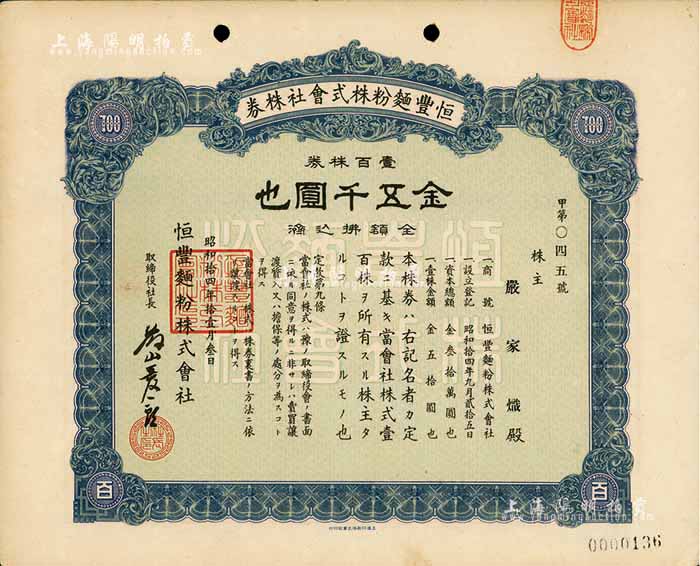 上海陽明拍賣
www.yangmingauction.com
恒豐麵粉株式會社株券
100
100
壹百株券
金五千圓也
全額拂込濟
甲第〇四五號
株主
嚴家熾殿
一商號 恒豐麵粉株式會社
一設立登記 昭和拾四年九月貳拾五日
一資本總額 金叁拾萬圓也
一壹株金額 金五拾圓也
本株券ハ右記名者カ定
款ニ基キ當會社株式壹
百株ヲ所有スル株主タ
ルコトヲ證スルモノ也
定款第九條
當會社ノ株式ハ豫ノ取締役會ノ書面
ニ依ル同意ヲ得ルニ非サレハ賣買讓
渡質入又ハ擔保等ノ處分ヲ為スコト
ヲ得ス
當會社ノ株式ハ株券裏書ノ方法ニ依
ヲ得ス
昭和拾四年拾壹月叁日
恒豐麵粉株式會社
取締役社長
百
百
上海陽明拍賣
www.yangmingauction.com
0000136